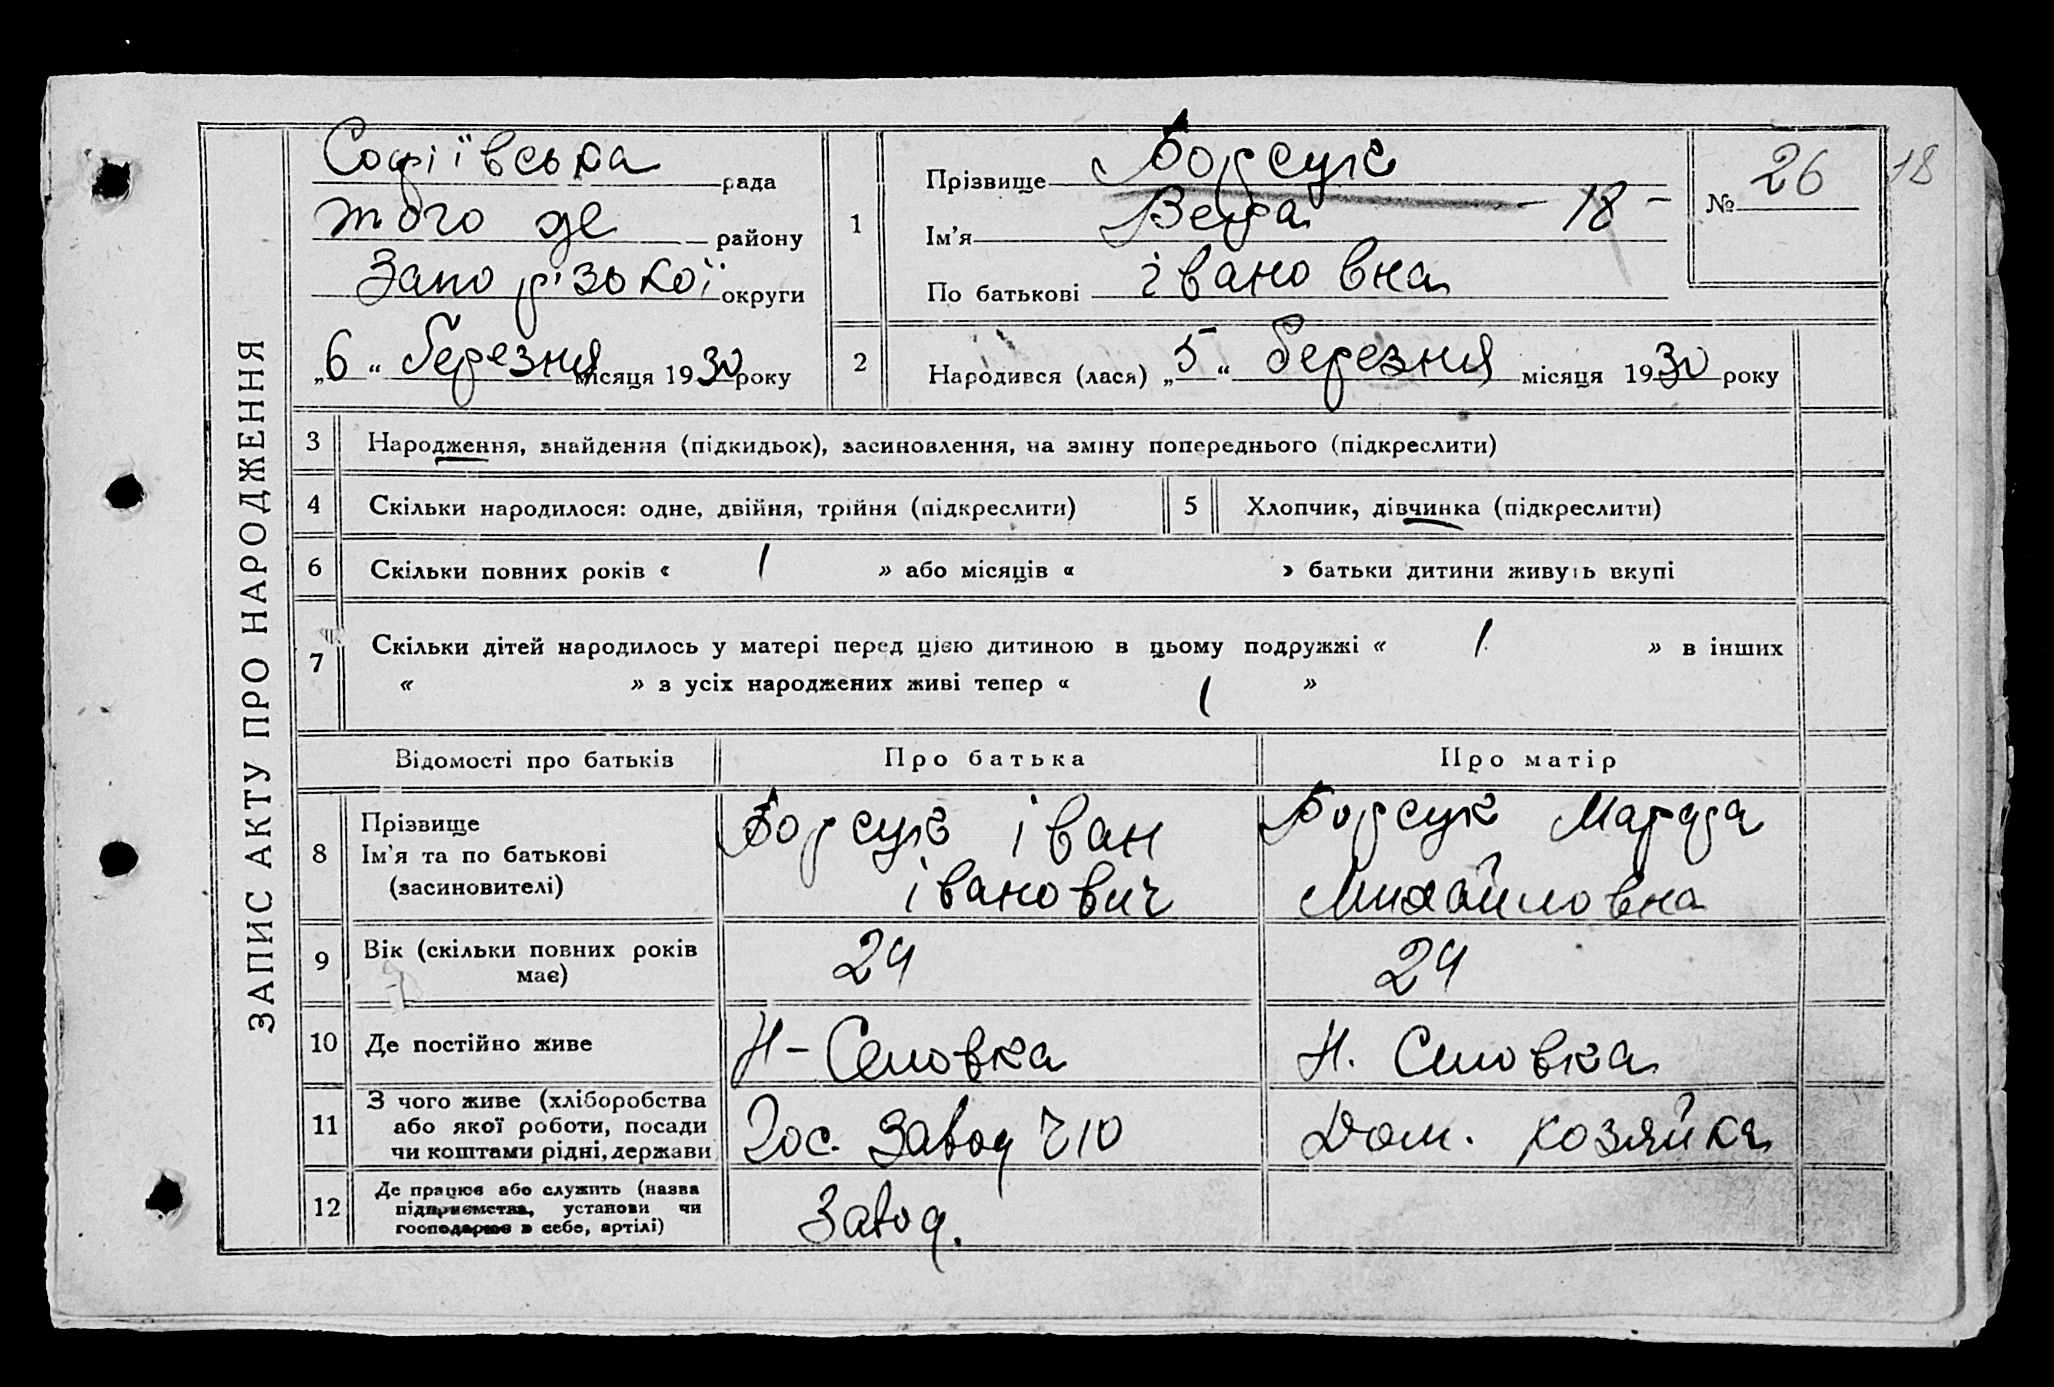 ЗАПИС АКТУ ПРО НАРОДЖЕННЯ
Софіївська рада
того же району
Запорізької округи
„6“ березня місяця 1930 року
1
Прізвище Борсук
Ім'я Вера - 18 -
По батькові івановна
№ 26
18
2
Народився (лася) „5“ березня місяця 1930 року
3 Народження, знайдення (підкидьок), засиновлення, на зміну попереднього (підкреслити)
4 Скільки народилося: одне, двійня, трійня (підкреслити)
5 Хлопчик, дівчинка (підкреслити)
6 Скільки повних років « 1 » або місяців « » батьки дитини живуть вкупі
7 Скільки дітей народилось у матері перед цією дитиною в цьому подружжі « 1 » в інших
« » з усіх народжених живі тепер « 1 »
Відомості про батьків Про батька Про матір
8
Прізвище
Ім'я та по батькові
(засиновителі)
Борсук іван
іванович
Борсук
Михайловна
9
Вік (скільки повних років
має)
24
24
10 Де постійно живе
11
З чого живе (хліборобства
або якої роботи, посади
чи коштами рідні, держави
Гос. Завод
Дом. хозяйка
12
Де працює або служить (назва
підприємства, установи чи
господарює в себе, артілі)
Завод.